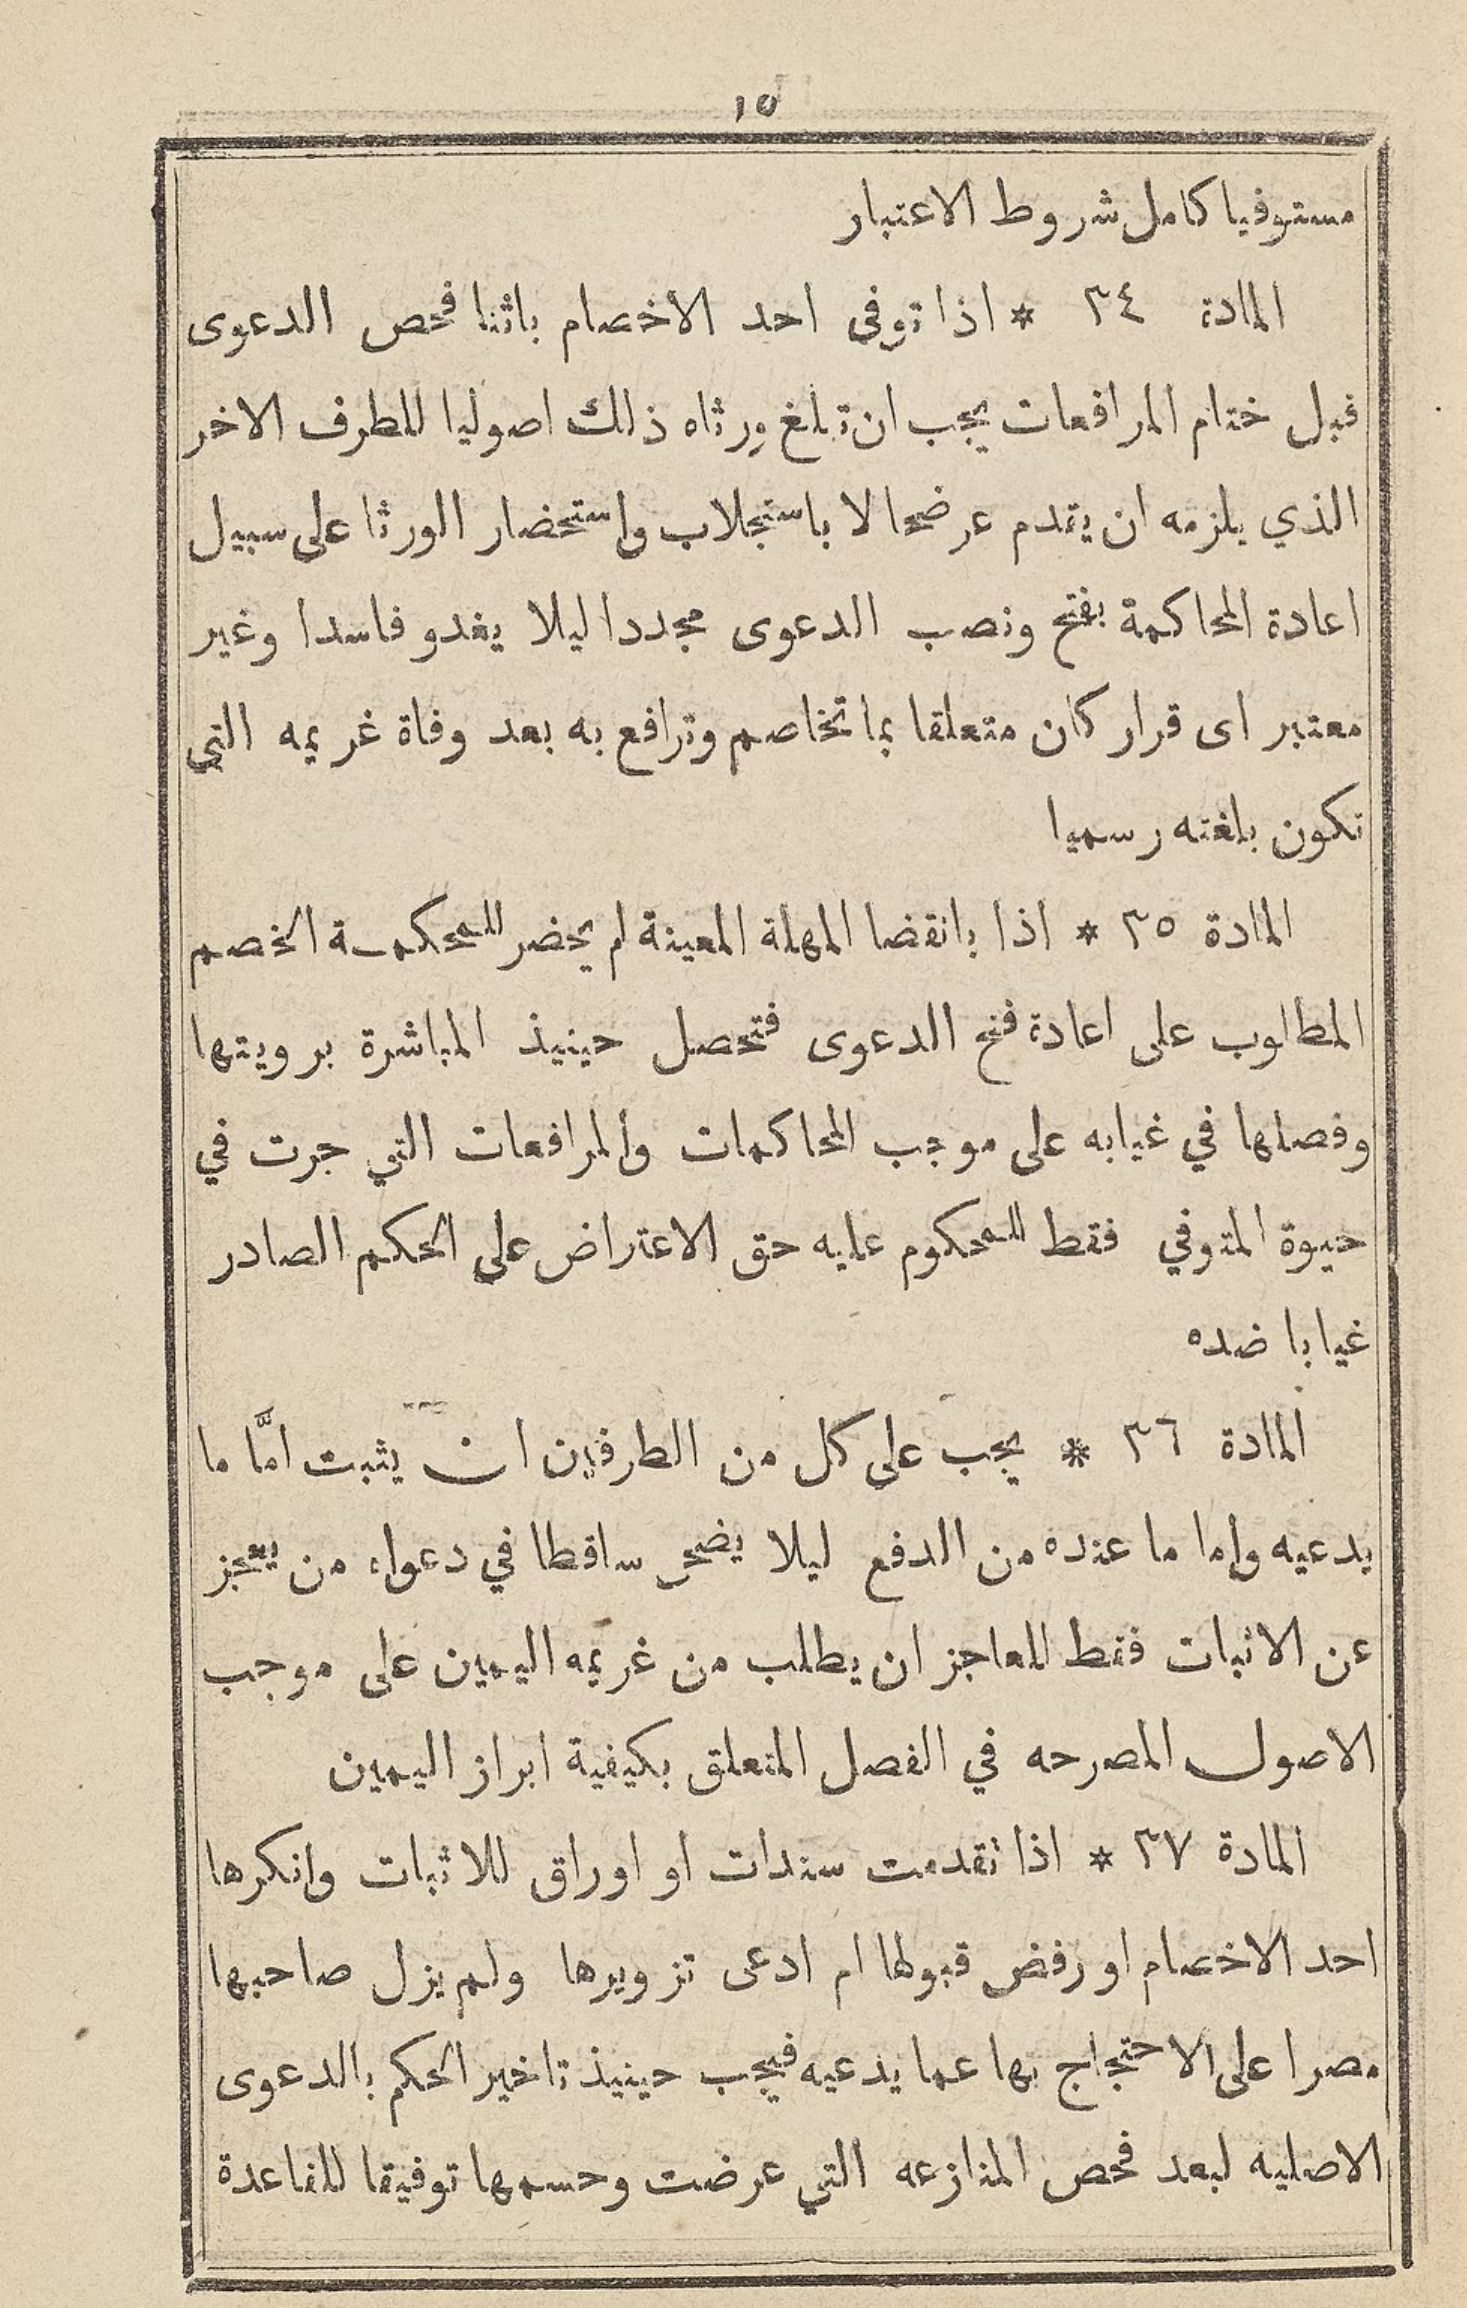 ١٥
مستوفيا كامل شروط الاعتبار
المادة ٣٤ * اذا توفى احد الاخصام باثنا فحص الدعوى
قبل ختام المرافعات يجب ان تبلغ ورثاه ذلك اصوليا للطرف الاخر
الذي يلزمه ان يقدم عرضحالا باستجلاب واستحضار الورثا على سبيل
اعادة المحاكمة بفتح ونصب الدعوى مجددا ليلا يغدو فاسدا وغير
معتبر اى قرار كان متعلقا بما تخاصم وترافع به بعد وفاة غريمه التي
تكون بلغته رسميا
المادة ٣٥ * اذا بانقضا المهلة المعينة لم يحضر للمحكمة الخصم
المطلوب على اعادة فتح الدعوى فتحصل حينيذ المباشرة برويتها
وفصلها في غيابه على موجب المحاكمات والمرافعات التي جرت في
حيوة المتوفي فقط للمحكوم عليه حق الاعتراض على الحكم الصادر
غيابا ضده
المادة ٣٦ * يجب على كل من الطرفين ان يثبت امَّا ما
يدعيه واما ما عنده من الدفع ليلا يضحى ساقطا في دعواه من يعجز
عن الاثبات فقط للعاجز ان يطلب من غريمه اليمين على موجب
الاصول المصرحه في الفصل المتعلق بكيفية ابراز اليمين
المادة ٣٧ * اذا تقدمت سندات او اوراق للاثبات وانكرها
احد الاخصام او رفض قبولها ام ادعى تزويرها ولم يزل صاحبها
مصرا على الاحتجاج بها عما يدعيه فيجب حينيذ تاخير الحكم بالدعوى
الاصليه لبعد فحص المنازعه التي عرضت وحسمها توفيقا للقاعدة